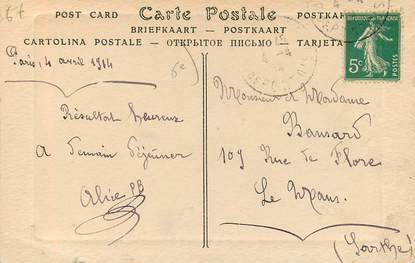 67
POST CARD Carte Postale POSTKARTE
BRIEFKAART — POSTKAART
CARTOLINA POSTALE — ОТКРЫТОЕ ПИСЬМО — TARJETA
5c
Paris, 4 avril 1914
Résultat heureux
A Demain Déjeuner
Alice
Monsieur et Madame
Bansard
109 Rue de Flore
Le Mans.
(Sarthe)